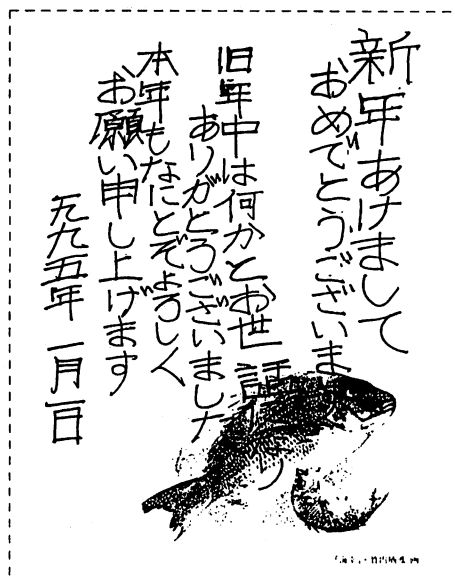 新年あけまして
おめでとうございま
旧年中は何かとお世話になり
ありがとうございました
本年もなにとぞよろしく
お願い申し上げます
一九九五年 一月一日